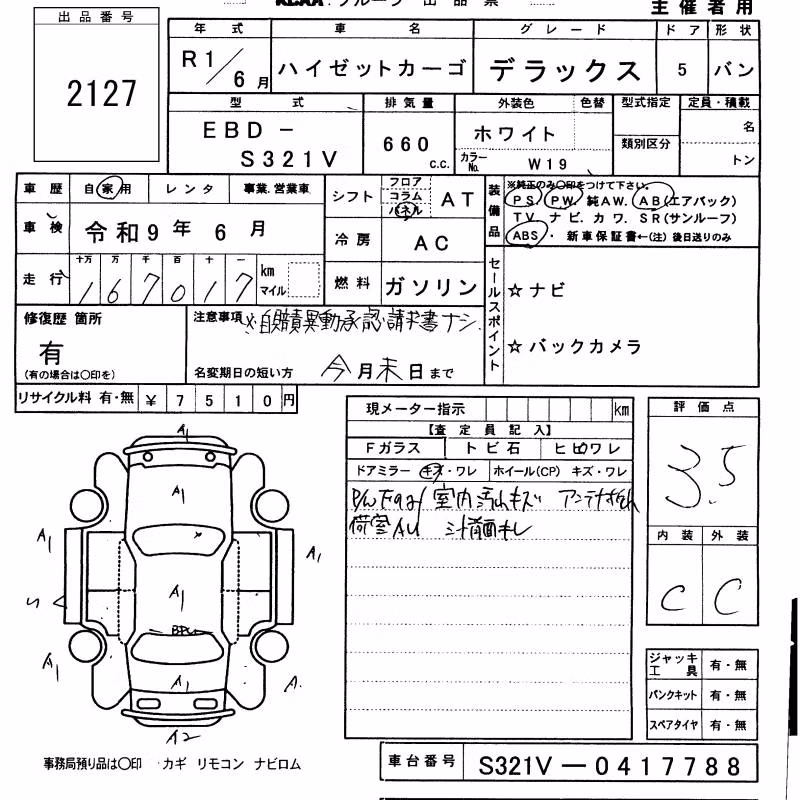 主催者用
出品番号
2127
年式 車名 グレード ドア 形状
R1/6月 ハイゼットカーゴ デラックス 5 バン
型式 排気量 外装色 色替 型式指定 定員・積載
EBD－S321V 660c.c. ホワイト 類別区分 名
カラーNo. W19 トン
車歴 自家用 レンタ 事業.営業車
シフト フロア コラム パネル AT
装備品 ※純正のみ○印をつけて下さい。
PS. PW. 純AW. AB(エアバック)
TV. ナビ. カワ. SR(サンルーフ)
ABS・ 新車保証書←(注) 後日送りのみ
車検 令和9年6月
冷房 AC
走行 十万 万 千 百 十 一
167017 km マイル
燃料 ガソリン
セールスポイント
☆ナビ
☆バックカメラ
修復歴 箇所
有
(有の場合は○印を)
注意事項 ※自賠責異動承認請求書ナシ.
名変期日の短い方 今月末日まで
リサイクル料 有・無 ¥ 7510円
現メーター指示 km
【査定員記入】
Fガラス トビ石 ヒビワレ
ドアミラー キズ・ワレ ホイール(CP) キズ・ワレ
室内汚れキズ
荷室AU
評価点
3.5
内装 外装
C C
A1
A1
A1
A1
A1
A1
A1
A.
A2
ジャッキ工具 有・無
パンクキット 有・無
スペアタイヤ 有・無
事務局預り品は○印 カギ リモコン ナビロム
車台番号 S321V－0417788